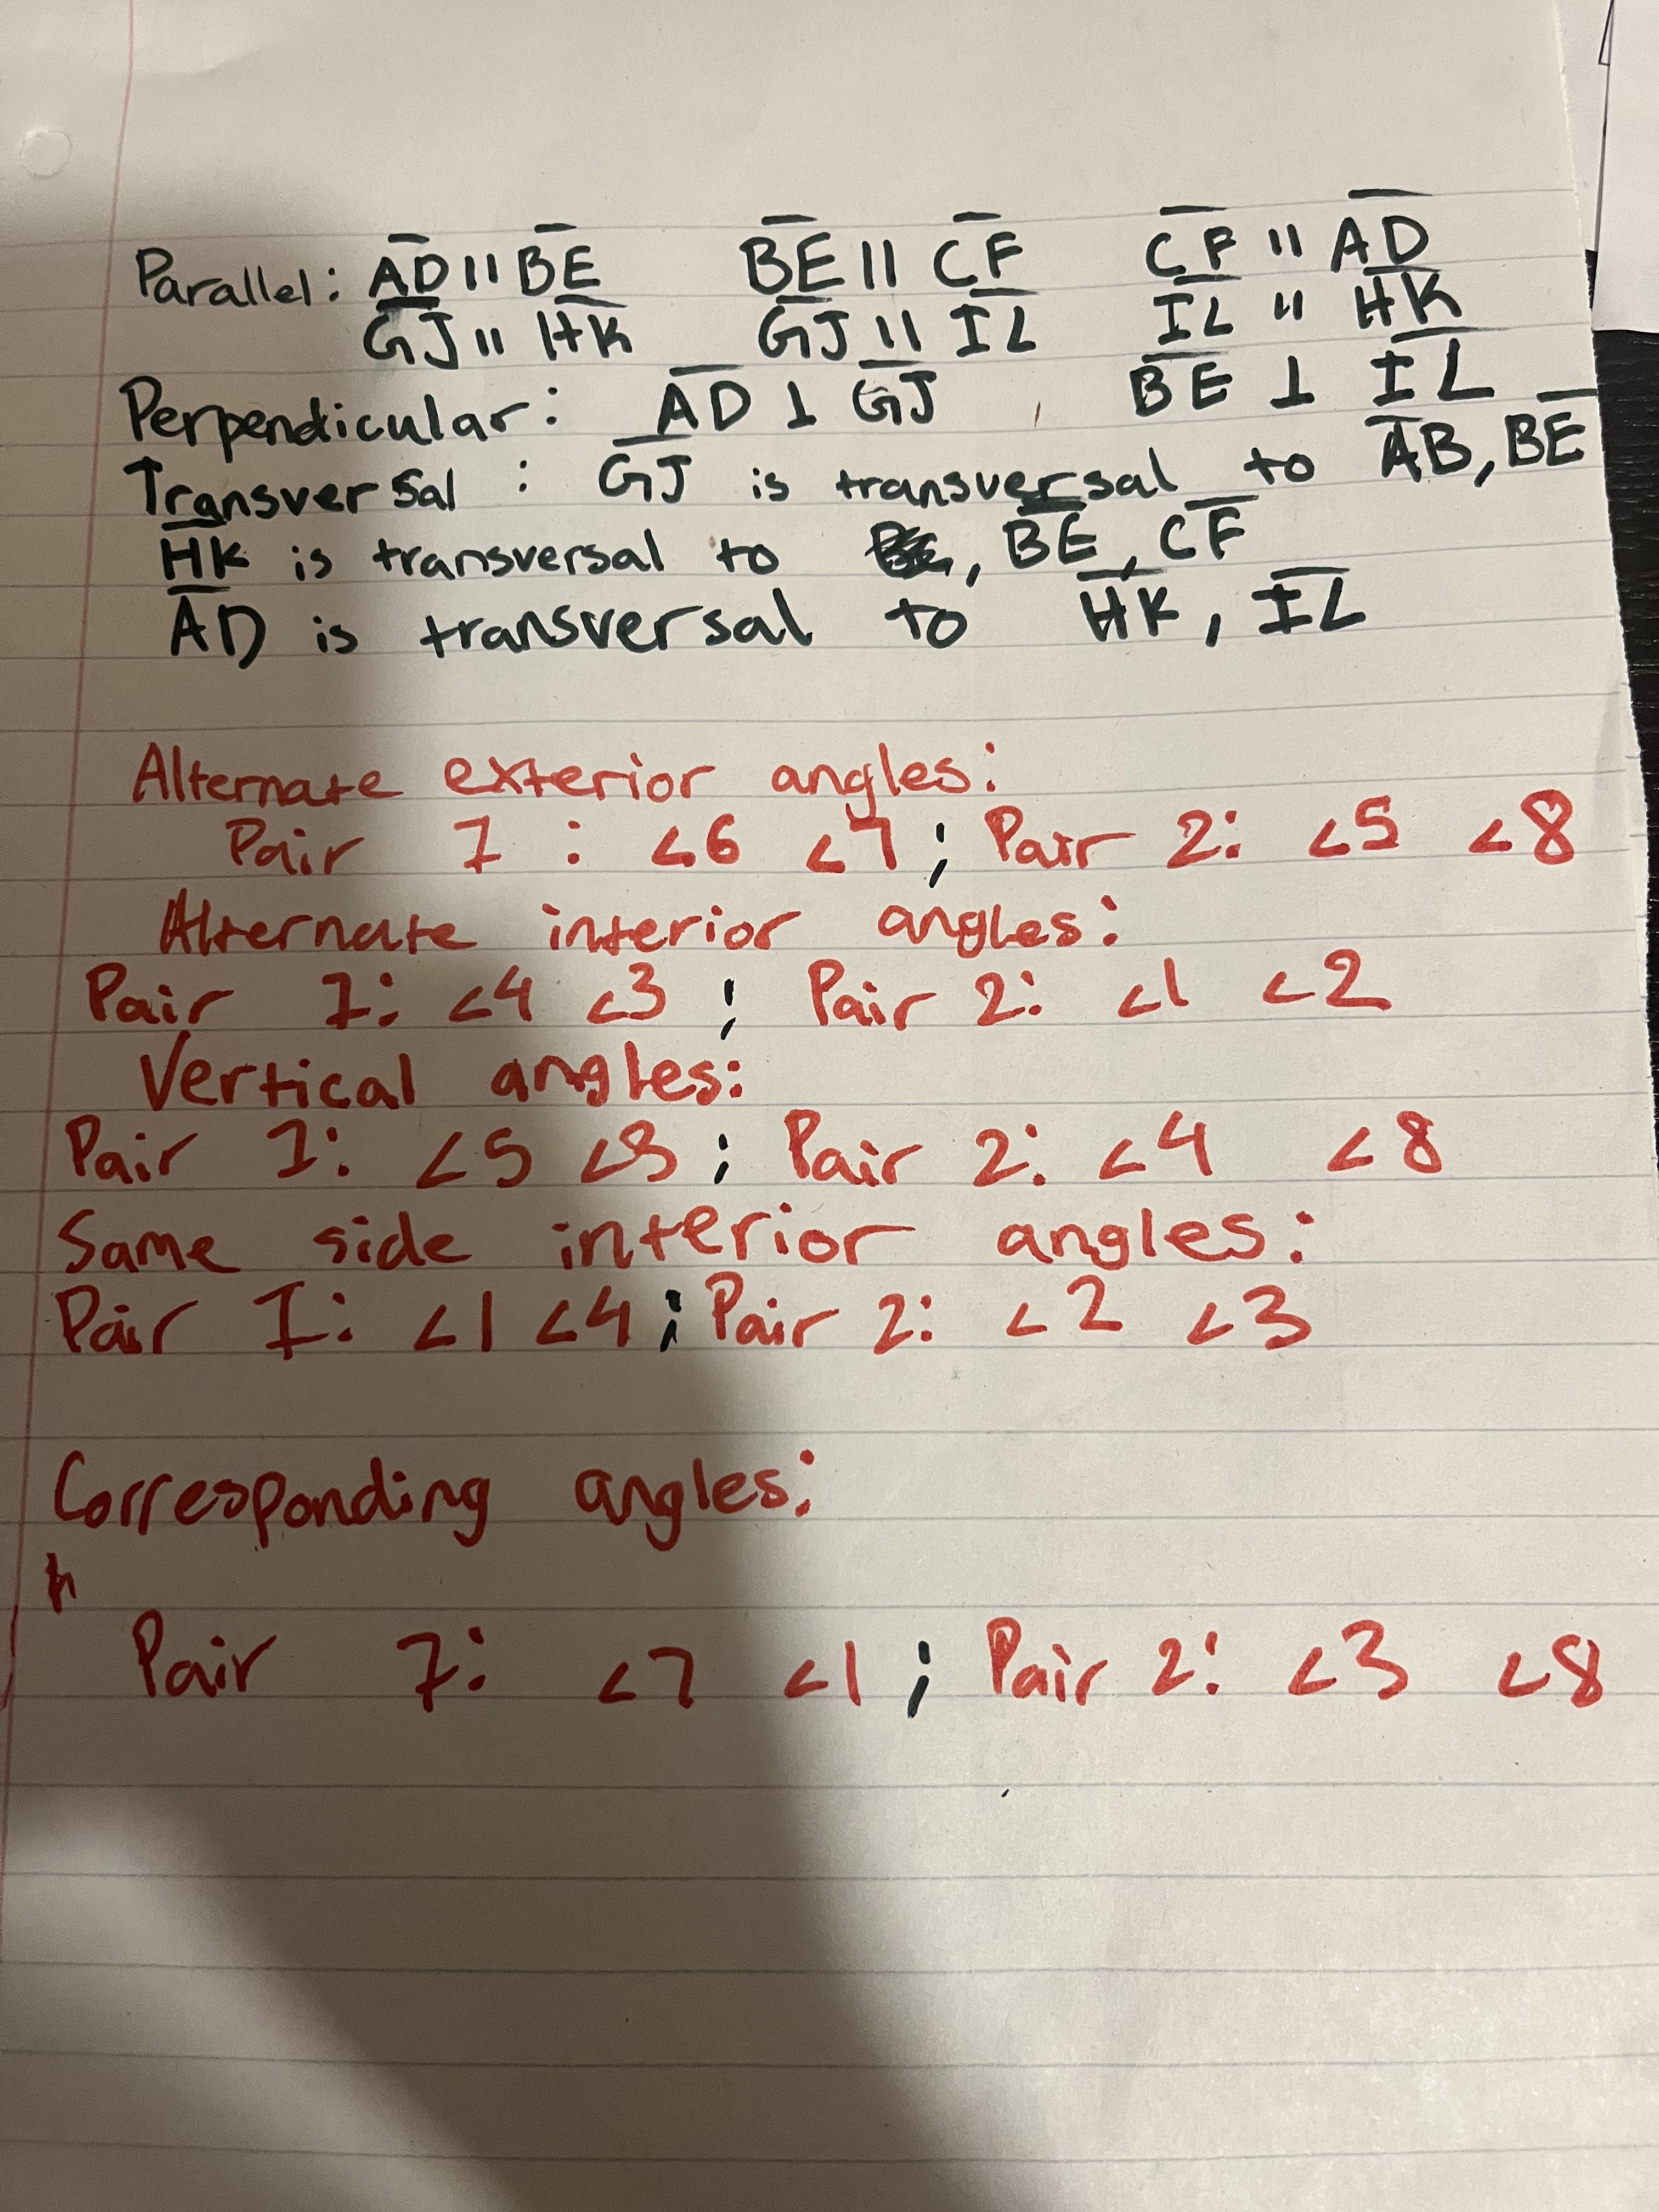 Parallel: AD || BE BE || CF CF || AD
GJ || HK GJ || IL IL || HK
Perpendicular: AD ⊥ GJ BE ⊥ IL
Transversal : GJ is transversal to AB, BE
HK is transversal to , BE, CF
AD is transversal to HK, IL
Alternate exterior angles:
Pair 1 : <6 <7 ; Pair 2: <5 <8
Alternate interior angles:
Pair 1: <4 <3 ; Pair 2: <1 <2
Vertical angles:
Pair 1: <5 <3 ; Pair 2: <4 <8
Same side interior angles:
Pair 1: <1 <4 ; Pair 2: <2 <3
Corresponding angles:
Pair 1: <7 <1 ; Pair 2: <3 <8